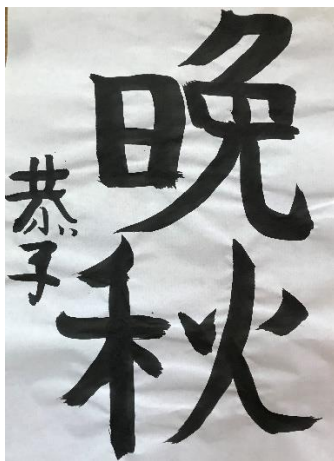 晩秋
恭子